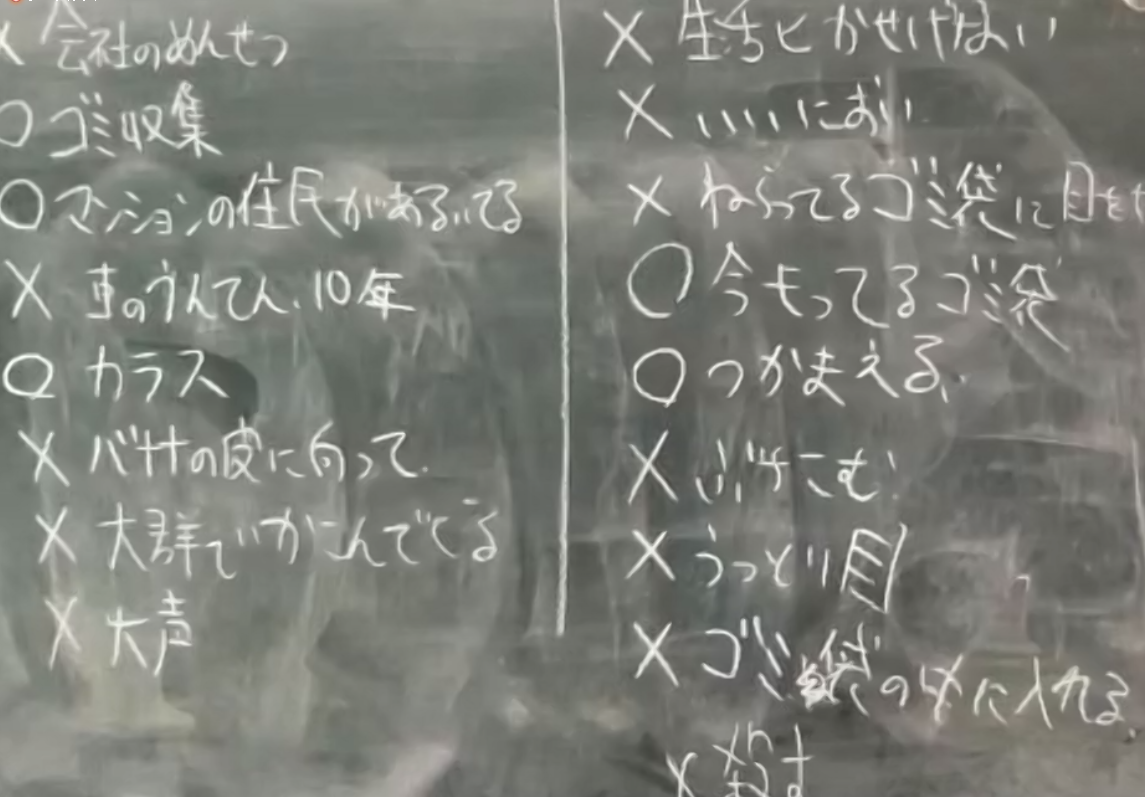 X 会社のめんせつ
○ ゴミ収集
○ マンションの住民があるいてる
X 車のうんてん、10年
○ カラス
X バサの皮に向って
X 大群でかこんででてる
X 大声
X 生活ヒかせげない
X いいにおい
X ねらってるゴミ袋に目を
○ 今もってるゴミ袋
○ つかまえる、
X ぶけこむ
X うっとり目
X ゴミ袋の中に入れる、
X 殺す